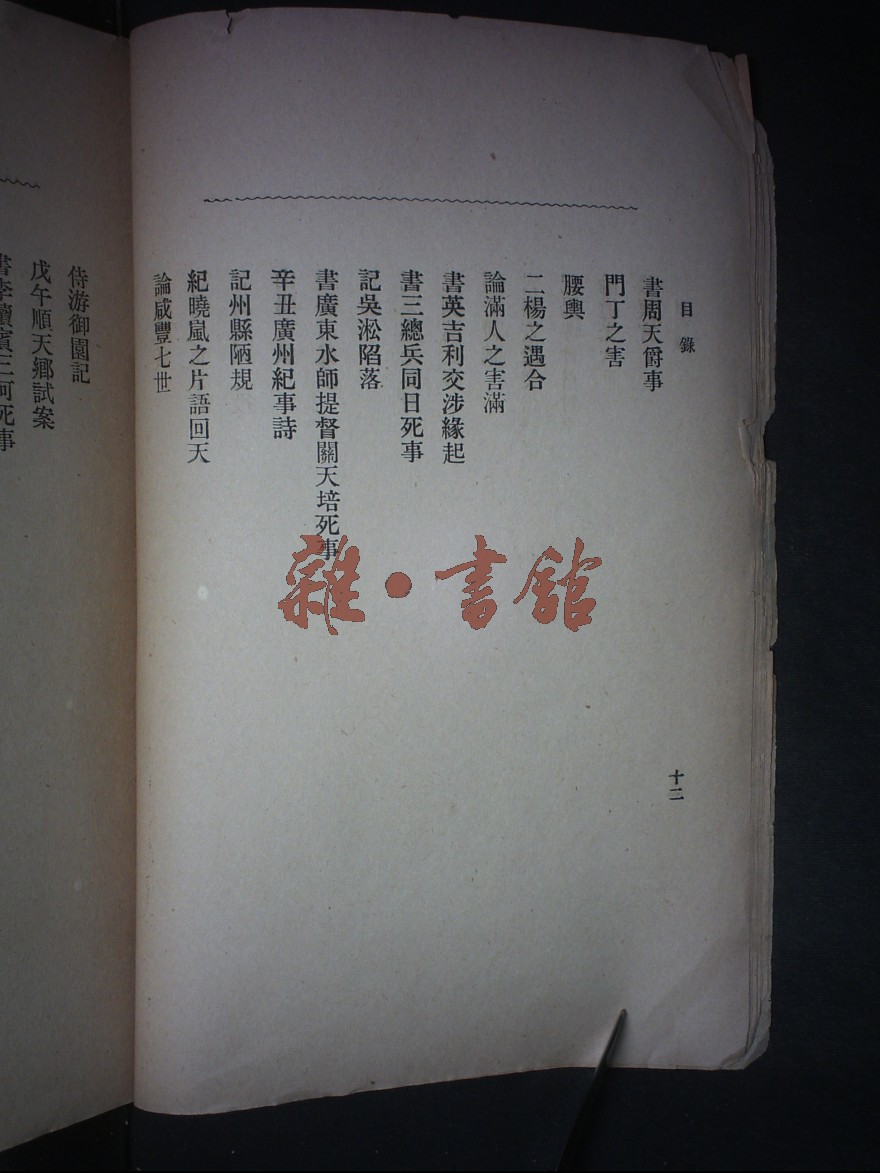 目錄
書周天爵事
門丁之害
腰輿
二楊之遇合
論滿人之害滿
書英吉利交涉緣起
書三總兵同日死事
記吳淞陷落
書廣東水師提督關天培死事
辛丑廣州紀事詩
記州縣陋規
紀曉嵐之片語回天
論咸豐七世
十二
雜·書館
侍游御園記
戊午順天鄉試案
書李續賓三河死事